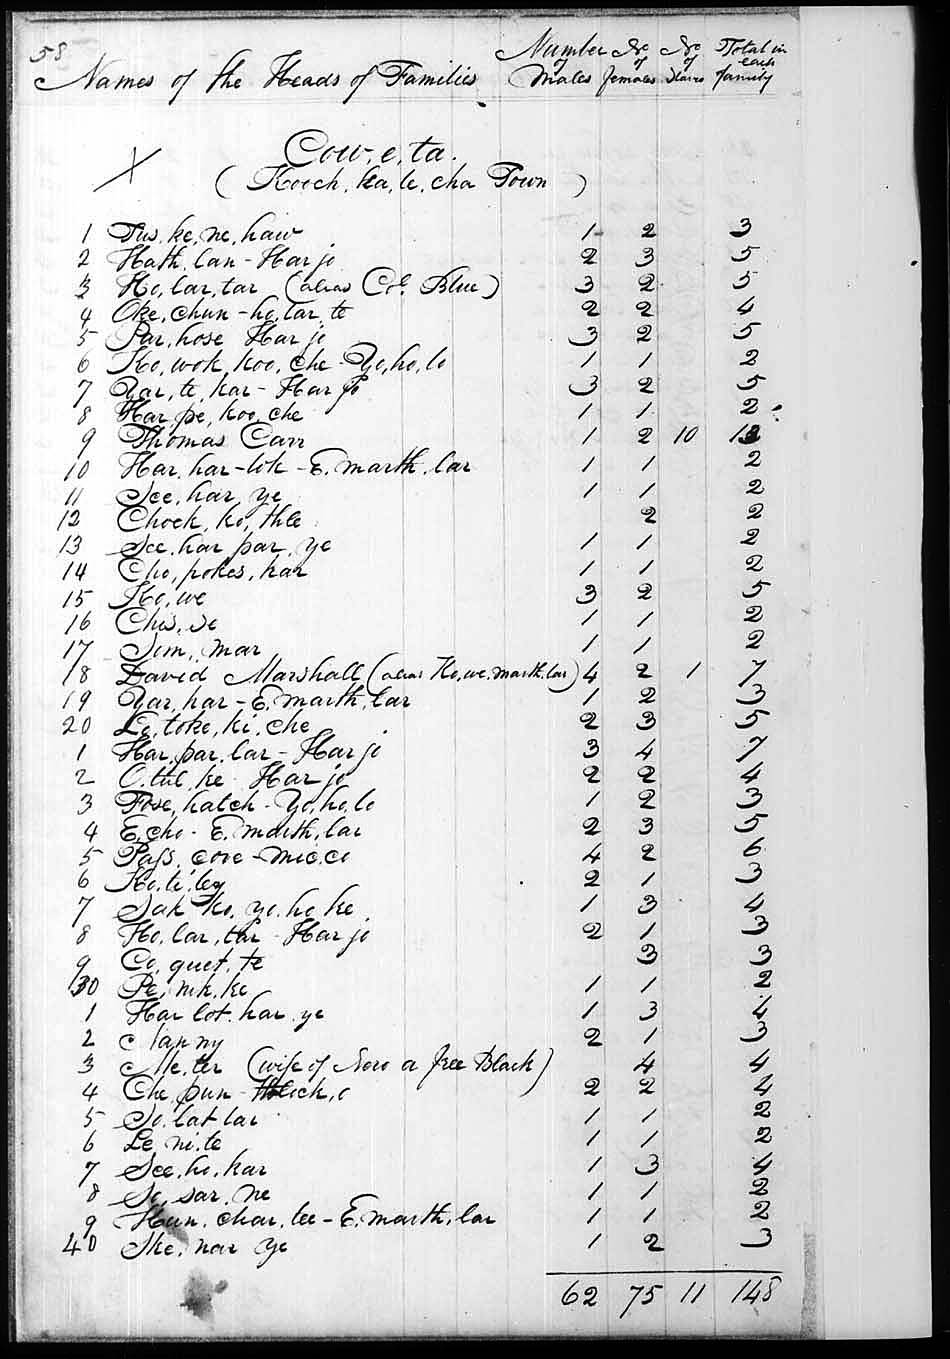 58
Names of the Heads of Families Number of Males No of females No of slaves Total in each family
Cow,e,ta.
(Kooch,ka,le,cha Town)
1 Tus,ke,ne,haw 1 2 3
2 Hath,lan-Harjo 2 3 5
3 Ho,lar,tar (alias Col. Blue) 3 2 5
4 Oke,chun-ho,lar,te 2 2 4
5 Par,hose Harjo 3 2 5
6 Ko,wok,koo,che-Yo,ho,lo 1 1 2
7 Yar,te,kar-Harjo 3 2 5
8 Har,pe,koo,che 1 1 2
9 Thomas Carr 1 2 10 13
10 Har,har-lok-E,marth,lar 1 1 2
11 See,har,ye 1 1 2
12 Chock,ko,thle 2 2
13 See,har,par,ye 1 1 2
14 Cho,pokes,har 1 1 2
15 Ko,we 3 2 5
16 Chis,se 1 1 2
17 Sim,mar 1 1 2
18 David Marshall (alias Ko,we,marth,lar) 4 2 1 7
19 Yar,har-E,marth,lar 1 2 3
20 Le,toke,ki,che 2 3 5
1 Har,par,lar-Harjo 3 4 7
2 O,tul,ke Harjo 2 2 4
3 Fose,hatch-Yo,ho,lo 1 2 3
4 E,cho-E,marth,lar 2 3 5
5 Pass,cove-mic,co 4 2 6
6 Ko,ti,ley 2 1 3
7 Sak,ko,yo,ho,ke 1 3 4
8 Ho,lar,tar-Harjo 2 1 3
9 Co,quet,te 3 3
30 Pe,nik,ke 1 1 2
1 Har,lot,har,ye 1 3 4
2 Nanny 2 1 3
3 Me,ter (wife of Nero a free Black) 4 4
4 Che,pun- 2 2 4
5 So,lat,lar 1 1 2
6 Le,ni,te 1 1 2
7 See,ho,kar 1 3 4
8 So,sar,ne 1 1 2
9 Hun,char,tee-E,marth,lar 1 1 2
40 Ske,nar,ye 1 2 3
62 75 11 148